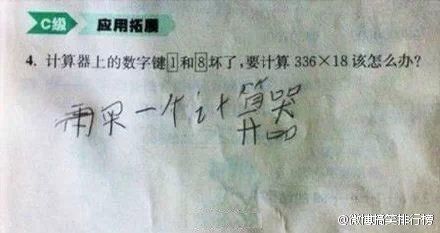 C级 应用拓展
4. 计算器上的数字键1和8坏了,要计算 336×18 该怎么办?
再买一个计算器
@微博搞笑排行榜